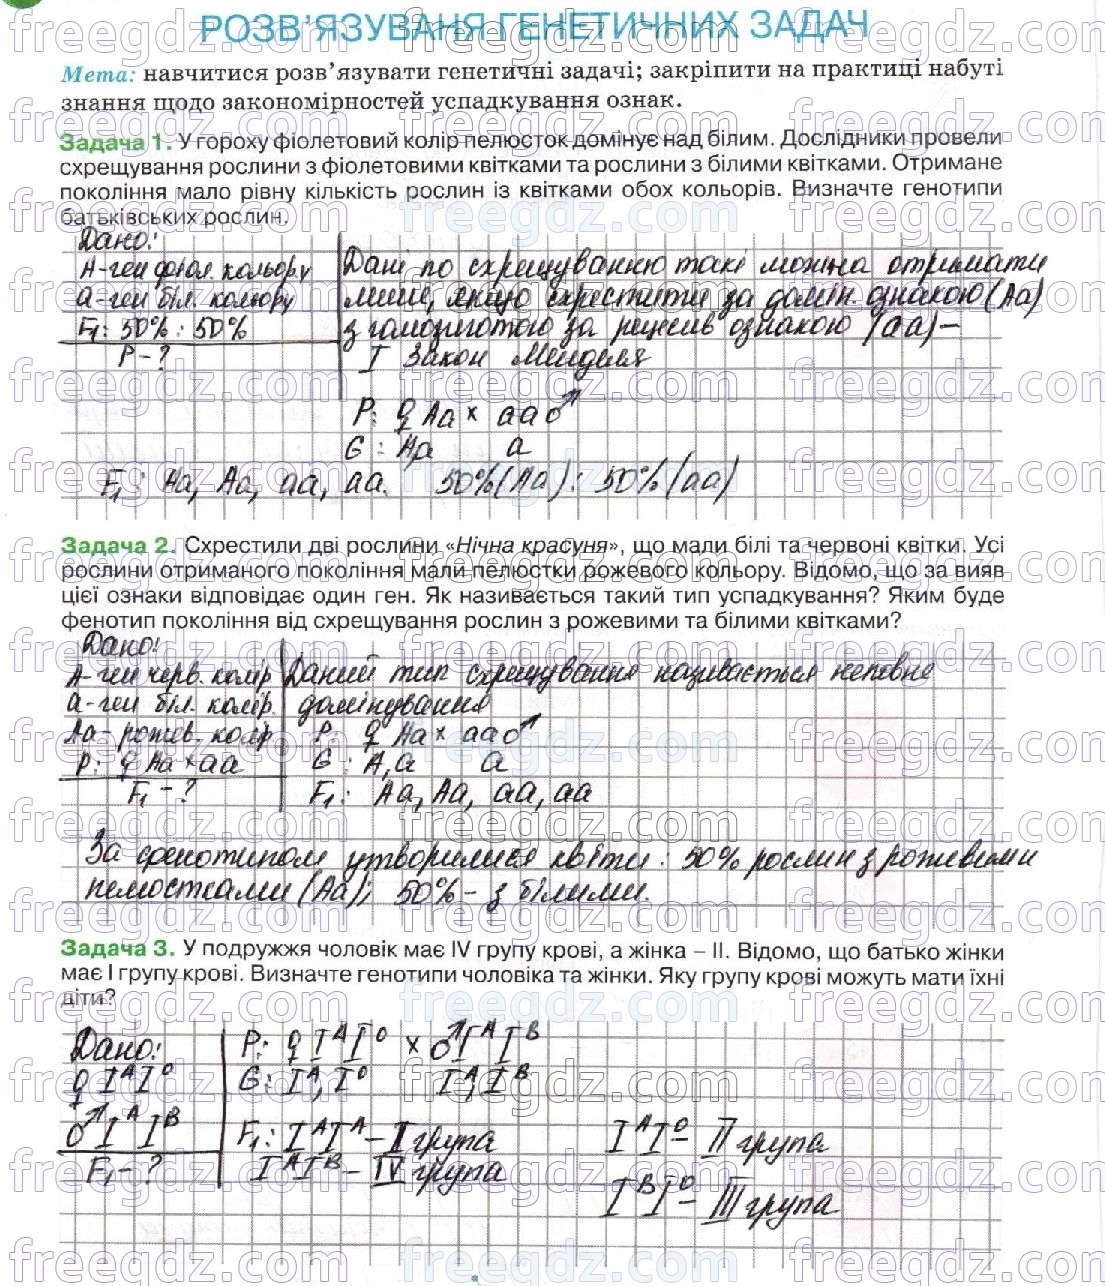 РОЗВ'ЯЗУВАНЯ ГЕНЕТИЧНИХ ЗАДАЧ
Мета: навчитися розв'язувати генетичні задачі; закріпити на практиці набуті
знання щодо закономірностей успадкування ознак.
Задача 1. У гороху фіолетовий колір пелюсток домінує над білим. Дослідники провели
схрещування рослини з фіолетовими квітками та рослини з білими квітками. Отримане
покоління мало рівну кількість рослин із квітками обох кольорів. Визначте генотипи
батьківських рослин.
Дано:
А-ген фіол. кольору
а-ген біл. кольору
F₁: 50% : 50%
P - ?
Дані по схрещуванню такі можна отримати
лише, якщо схрестити за домін. ознакою (Аа)
з гомозиготою за рецесив ознакою (аа) –
I Закон Менделя
P: ♀ Aa × aa ♂
G: Aa a
F₁: Aa, Aa, aa, aa. 50% (Aa) : 50% (aa)
Задача 2. Схрестили дві рослини «Нічна красуня», що мали білі та червоні квітки. Усі
рослини отриманого покоління мали пелюстки рожевого кольору. Відомо, що за вияв
цієї ознаки відповідає один ген. Як називається такий тип успадкування? Яким буде
фенотип покоління від схрещування рослин з рожевими та білими квітками?
Дано:
А-ген черв. колір
а-ген біл. колір.
Аа-рожев. колір
P: ♀ Aa × aa
F₁ - ?
Даний тип схрещування називається неповне
домінування
P: ♀ Aa × aa ♂
G: A, a a
F₁: Aa, Aa, aa, aa
За фенотипом утворилися квіти: 50% рослин з рожевими
пелюстками (Аа); 50% - з білими.
Задача 3. У подружжя чоловік має IV групу крові, а жінка – II. Відомо, що батько жінки
має I групу крові. Визначте генотипи чоловіка та жінки. Яку групу крові можуть мати їхні
діти?
Дано:
♀ IᴬI⁰
♂ IᴬIᴮ
F₁ - ?
P: ♀ IᴬI⁰ × ♂ IᴬIᴮ
G: Iᴬ, I⁰ Iᴬ, Iᴮ
F₁: IᴬIᴬ – II група
IᴬIᴮ – IV група
IᴬI⁰ – II група
IᴮI⁰ – III група
freegdz.com